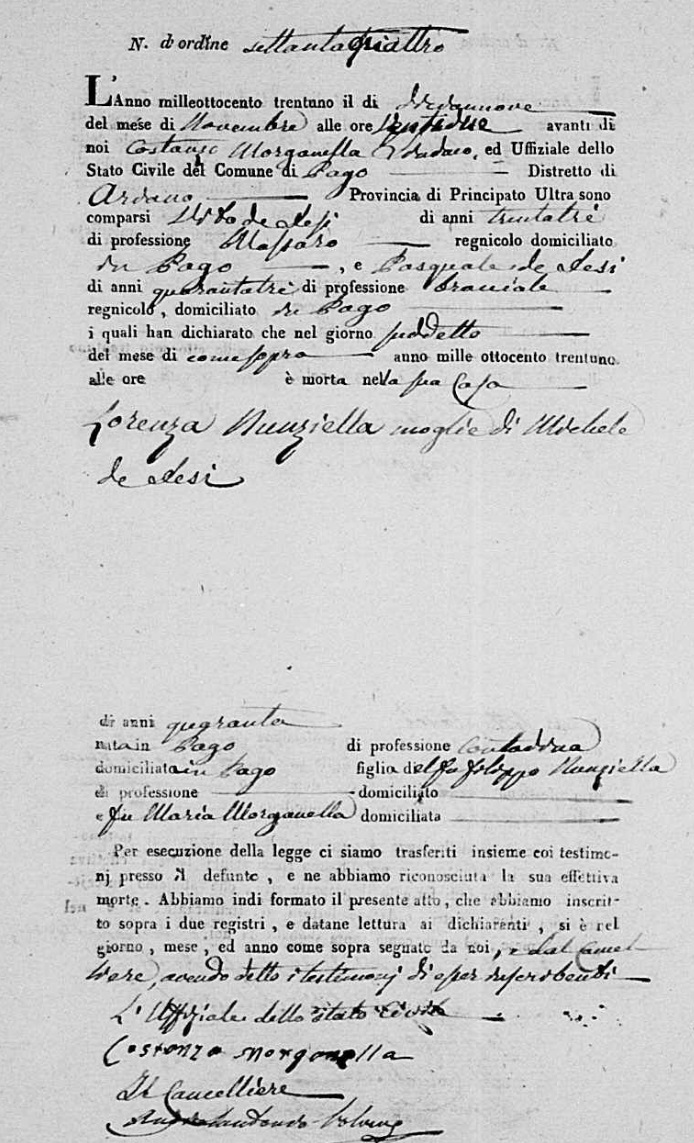 N. d'ordine settantaquattro
L'Anno milleottocento trentuno il di diciannove
del mese di Novembre alle ore ventidue avanti di
noi Costanzo Morganella Sindaco, ed Uffiziale dello
Stato Civile del Comune di Pago Distretto di
Ariano Provincia di Principato Ultra sono
comparsi Vito de Lesi di anni trentatre
di professione Massaro regnicolo domiciliato
in Pago, e Pasquale de Lesi
di anni quarantatre di professione bracciale
regnicolo, domiciliato in Pago
i quali han dichiarato che nel giorno suddetto
del mese di come sopra anno mille ottocento trentuno
alle ore è morta nella sua Casa
Lorenza Nunziella moglie di Michele
de Lesi
di anni quaranta
nata in Pago di professione contadina
domiciliata in Pago figlia del fu Filippo Nunziella
di professione domiciliato
e fu Maria Morganella domiciliata
Per esecuzione della legge ci siamo trasferiti insieme coi testimo-
nj presso il defunto, e ne abbiamo riconosciuta la sua effettiva
morte. Abbiamo indi formato il presente atto, che abbiamo inscrit-
to sopra i due registri, e datane lettura ai dichiarenti, si è nel
giorno, mese, ed anno come sopra segnato da noi, e dal Cancel
liere, avendo detto i testimonj di esser
L'Uffiziale dello stato Civile
Costanzo Morganella
Il Cancelliere